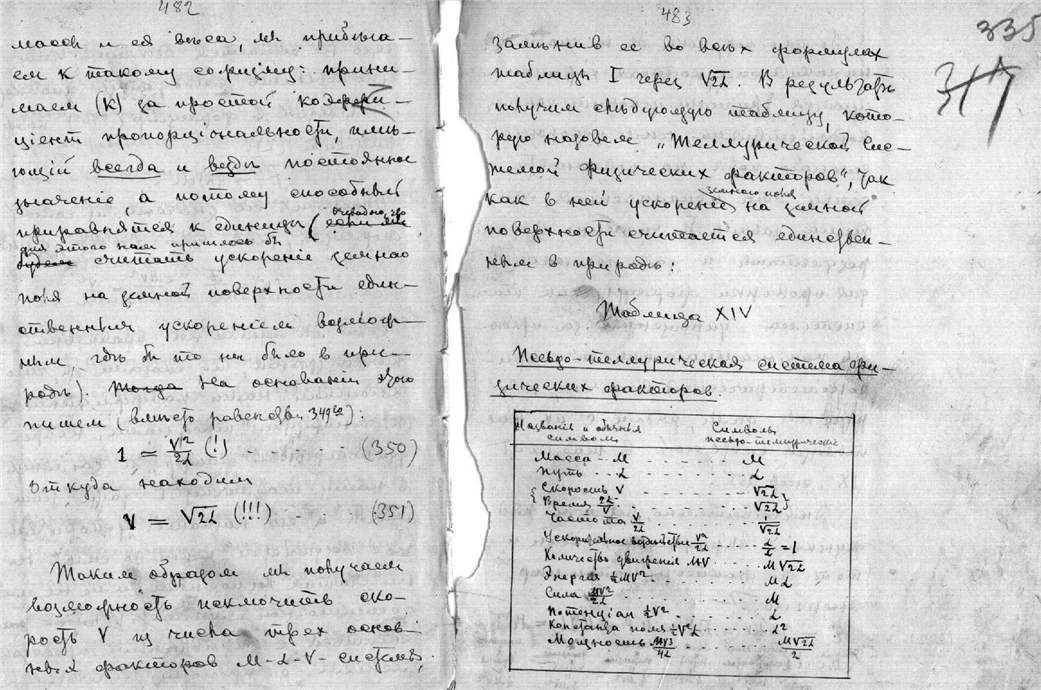 482
массы и ея веса, мы прибѣга-
ем к такому софизму: прини-
маем (К) за простой коэффи-
циент пропорціональности, имѣ-
ющій всегда и вездѣ постоянное
значеніе, а потому способный
приравняться к единицы (очевидно, что
если мы
для этого нам пришлось бы
будем считать ускореніе земнаго
поля на земной поверхности един-
ственным ускореніем возмож-
ным, гдѣ бы то ни было в при-
родѣ). Тогда На основаніи этого
пишем (вмѣсто равенства 349го):
1 = V²/2L (!) - - - (350)
откуда находим
V = √2L (!!!) - - (351)
Таким образом мы получаем
возможность исключить ско-
рость V из числа трех основ-
ных факторов M-L-V-системы,
483
335
317
замѣнив ее во всѣх формулах
таблицы I через √2L. В результатѣ
получим слѣдующую таблицу, кото-
рую назовем „Теллурической Сис-
темой физических факторов", так
как в ней ускореніе земного поля на земной
поверхности считается единствен-
ным в природѣ:
Таблица XIV
Псевдо-теллурическая система фи-
зических факторов.
Названія и обычныя символы
Символы псевдо-теллурические
Масса M - - - - - M
Путь L - - - - - L
Скорость V - - - - - √2L
Время 2L/V - - - - - √2L
Частота V/2L - - - - - 1/√2L
Ускорительное воздѣйствіе V²/2L - - - L/L = 1
Количество движенія MV - - - M√2L
Энергія ½MV² - - - - - ML
Сила MV²/2L - - - - - M
Потенціал ½V² - - - - - L
Константа поля ½V²L - - - L²
Мощность MV³/4L - - - M√2L/2